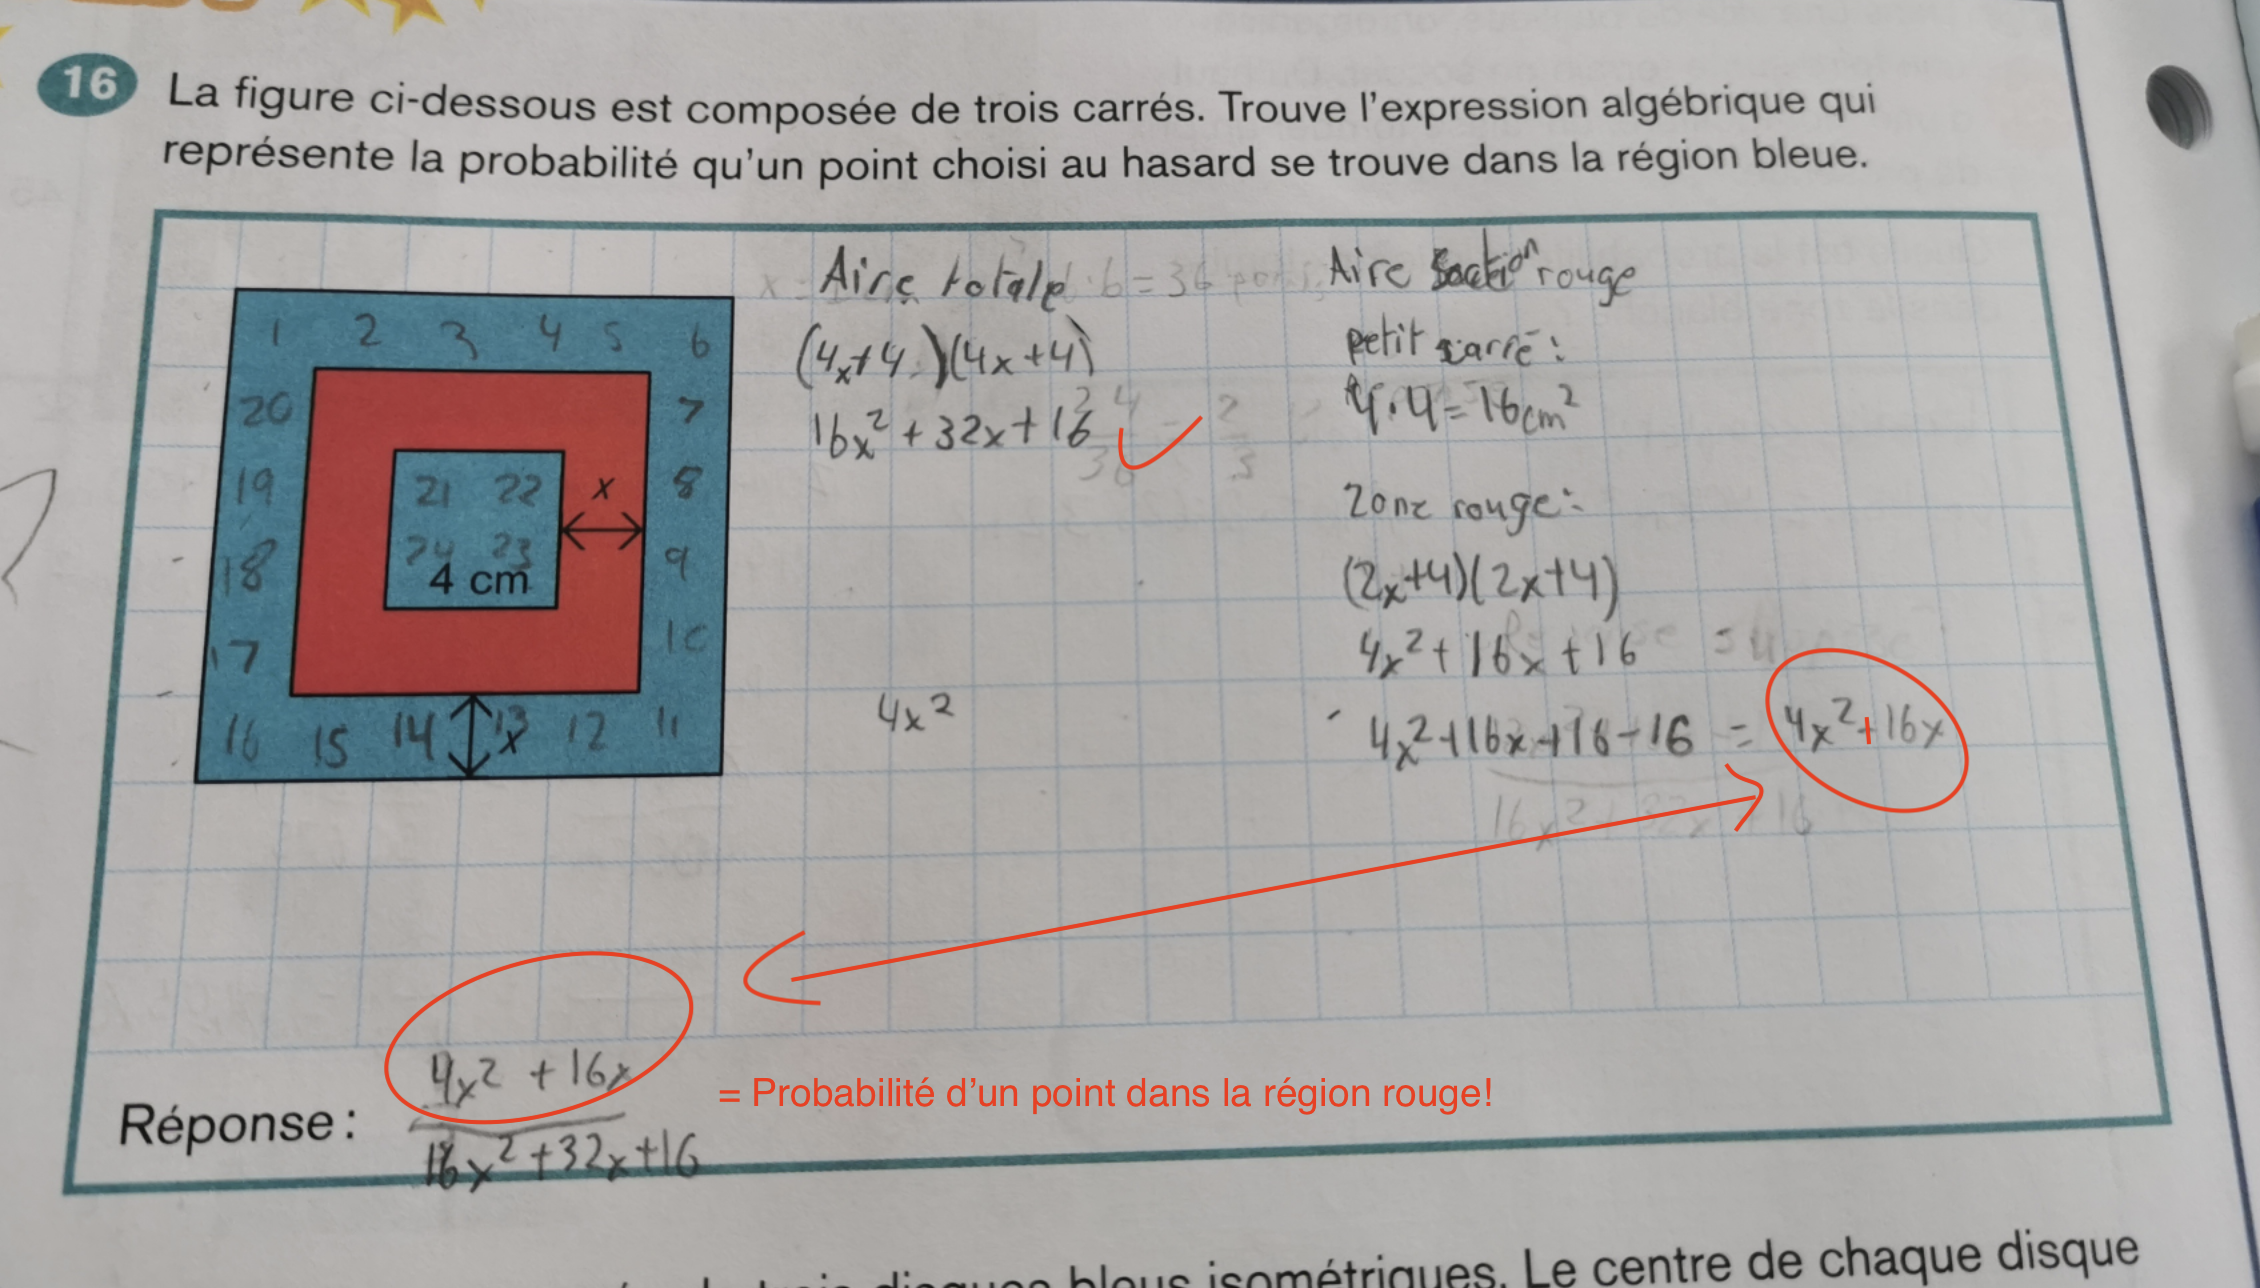 16
La figure ci-dessous est composée de trois carrés. Trouve l'expression algébrique qui
représente la probabilité qu'un point choisi au hasard se trouve dans la région bleue.
1 2 3 4 5 6
20 7
19 21 22 x 8
18 24 23 9
4 cm
17 10
16 15 14 13 x 12 11
Aire totale
(4x+4)(4x+4)
16x² + 32x + 16
4x²
Aire section rouge
petit carré:
4·4=16cm²
Zone rouge:
(2x+4)(2x+4)
4x²+16x+16
4x²+16x+16-16 = 4x²+16x
16x²+32x 16
Réponse:
4x² + 16x
16x²+32x+16
= Probabilité d'un point dans la région rouge!
trois disques bleus isométriques. Le centre de chaque disque